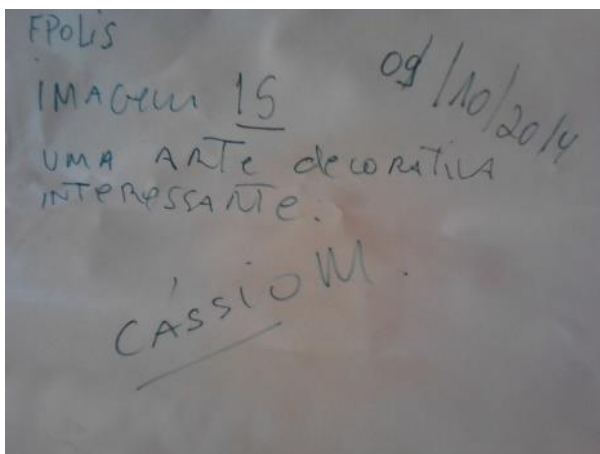 FPOLIS
09/10/2014
IMAGEM 15
UMA ARTE decORATIVA
INTERESSANTE.
CÁSSIO M.